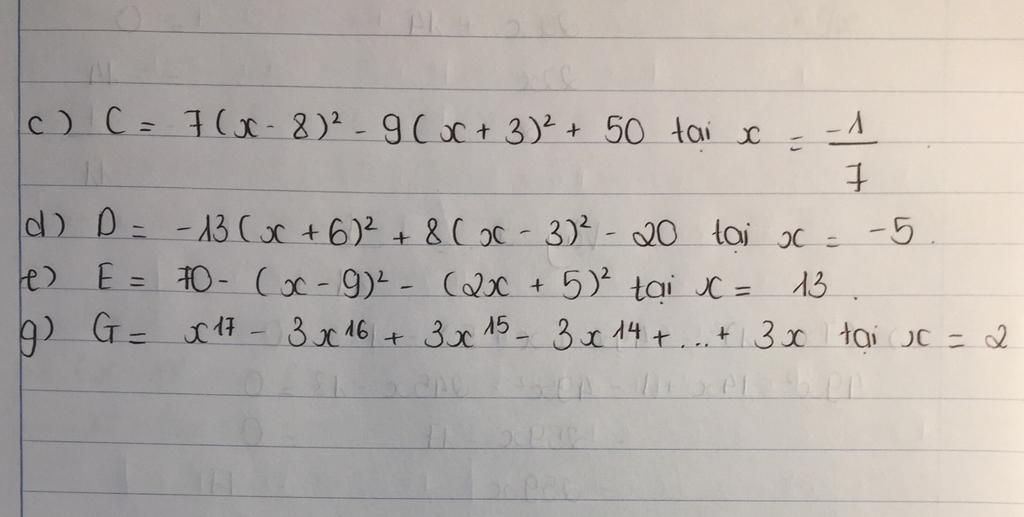 c) C = 7(x - 8)² - 9(x + 3)² + 50 tại x = -1/7
d) D = -13(x + 6)² + 8(x - 3)² - 20 tại x = -5.
e) E = 70 - (x - 9)² - (2x + 5)² tại x = 13.
g) G = x¹⁷ - 3x¹⁶ + 3x¹⁵ - 3x¹⁴ + ... + 3x tại x = 2